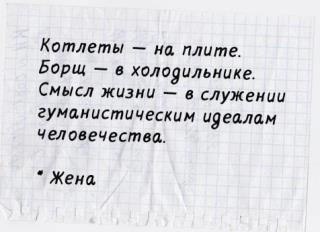 Котлеты — на плите.
Борщ — в холодильнике.
Смысл жизни — в служении
гуманистическим идеалам
человечества.
* Жена